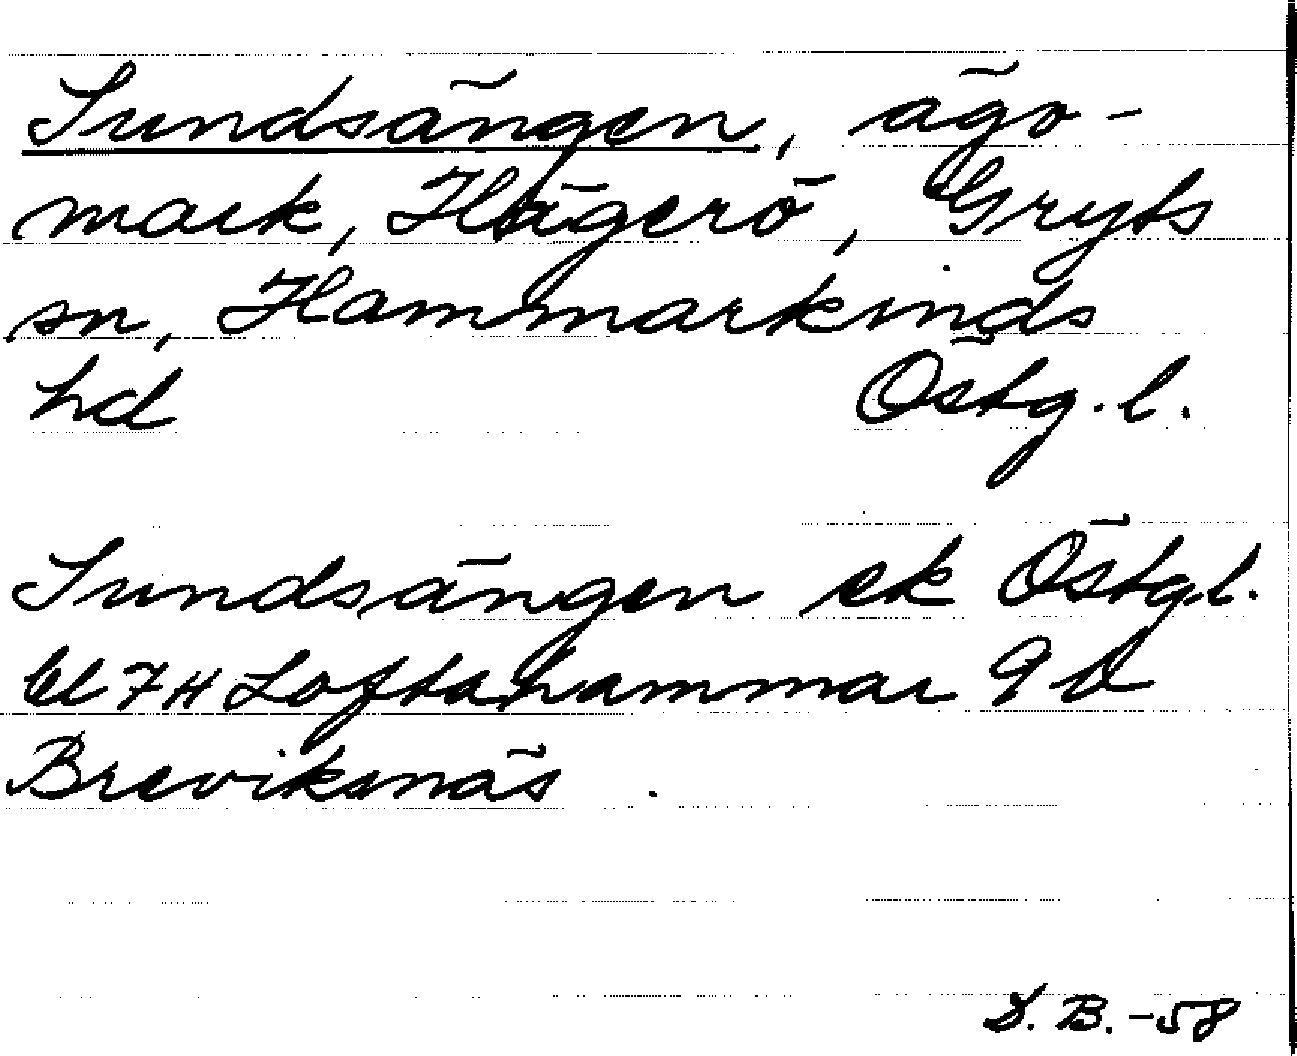 Sundsängen, ägo-
mark, Hägerö, Gryts
sn, Hammarkinds
hd Östg. l.
Sundsängen ek Östg.l.
bl 7H Loftahammar 9 b
Breviksnäs.
D. B. -58